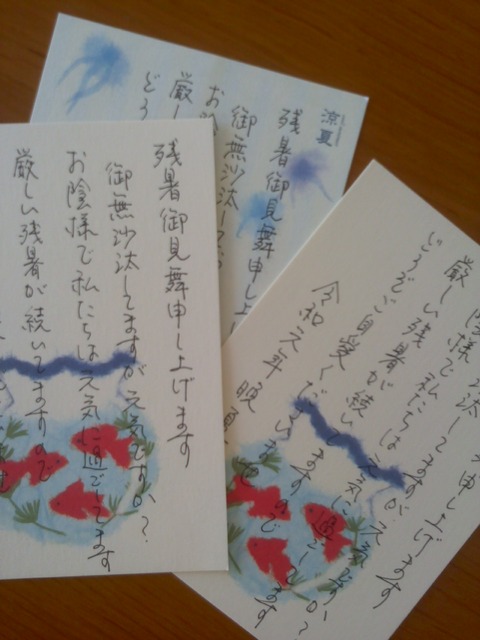 残暑御見舞申し上げます
御無沙汰してますが元気ですか?
お陰様で私たちは元気に過ごしてます
厳しい残暑が続いてますので
涼夏
残暑御見舞申し上
御無沙汰して
お陰
厳し
どう
申し上げます
沙汰してますが元気ですか?
陰様で私たちは元気に過ごしてます
厳しい残暑が続いてますので
どうぞご自愛くださいませ
令和元年 晩夏